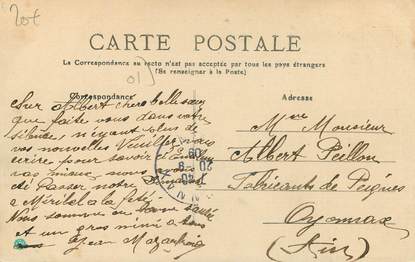 20f
CARTE POSTALE
La Correspondance au recto n'est pas acceptée par tous les pays étrangers
(Se renseigner à la Poste)
01
Correspondance
Adresse
Cher Albert chere belle sœur
que faite vous dans votre
silence, n'ayant plus de
vos nouvelles Veuillez nous
écrire pour savoir si
vas mieux, nous
Passer notre
a Miribel la fête
Nous somme en bonne santé
et un gros mimi a tous
Jean
Mme Monsieur
Albert Peillon
Fabricants de Peignes
Oyonnax
(Ain)